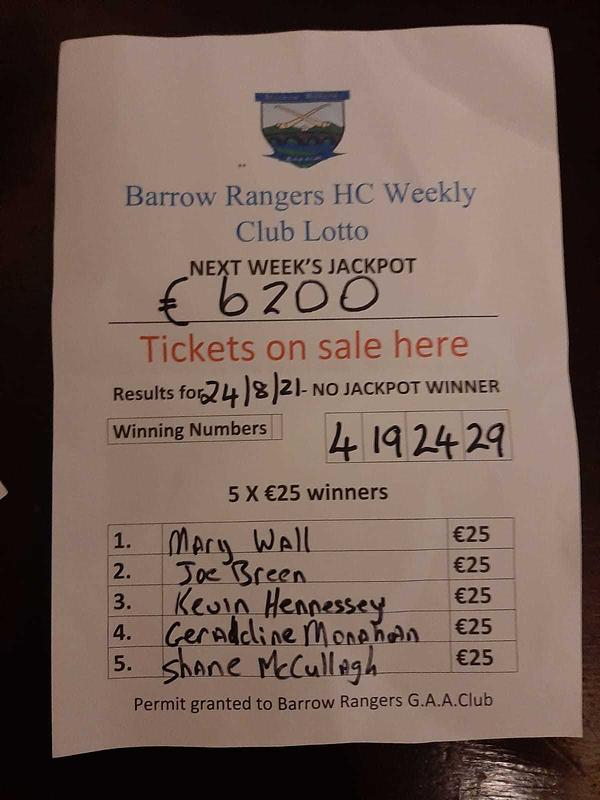 Barrow Rangers HC Weekly
Club Lotto
NEXT WEEK'S JACKPOT
€ 6200
Tickets on sale here
Results for 24/8/21- NO JACKPOT WINNER
Winning Numbers 4 19 24 29
5 X €25 winners
1. Mary Wall €25
2. Joe Breen €25
3. Kevin Hennessey €25
4. Geraldline Monahan €25
5. Shane McCullagh €25
Permit granted to Barrow Rangers G.A.A.Club